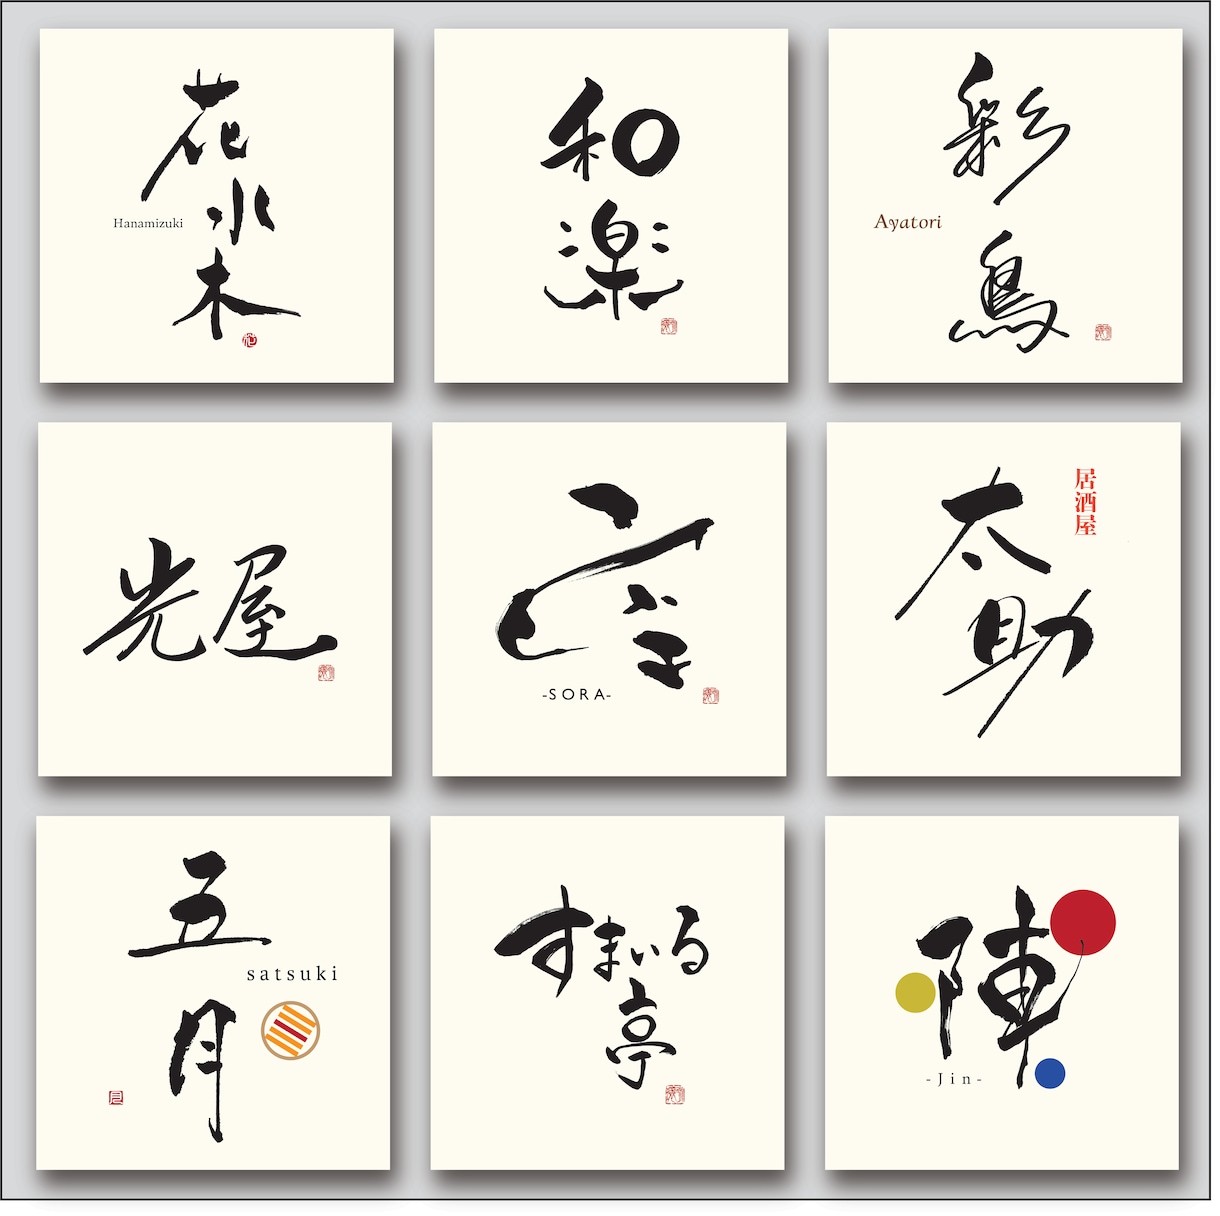 花水木
Hanamizuki
和楽
彩鳥
Ayatori
光屋
空
-SORA-
居酒屋
太助
五月
satsuki
すまいる亭
陣
-Jin-